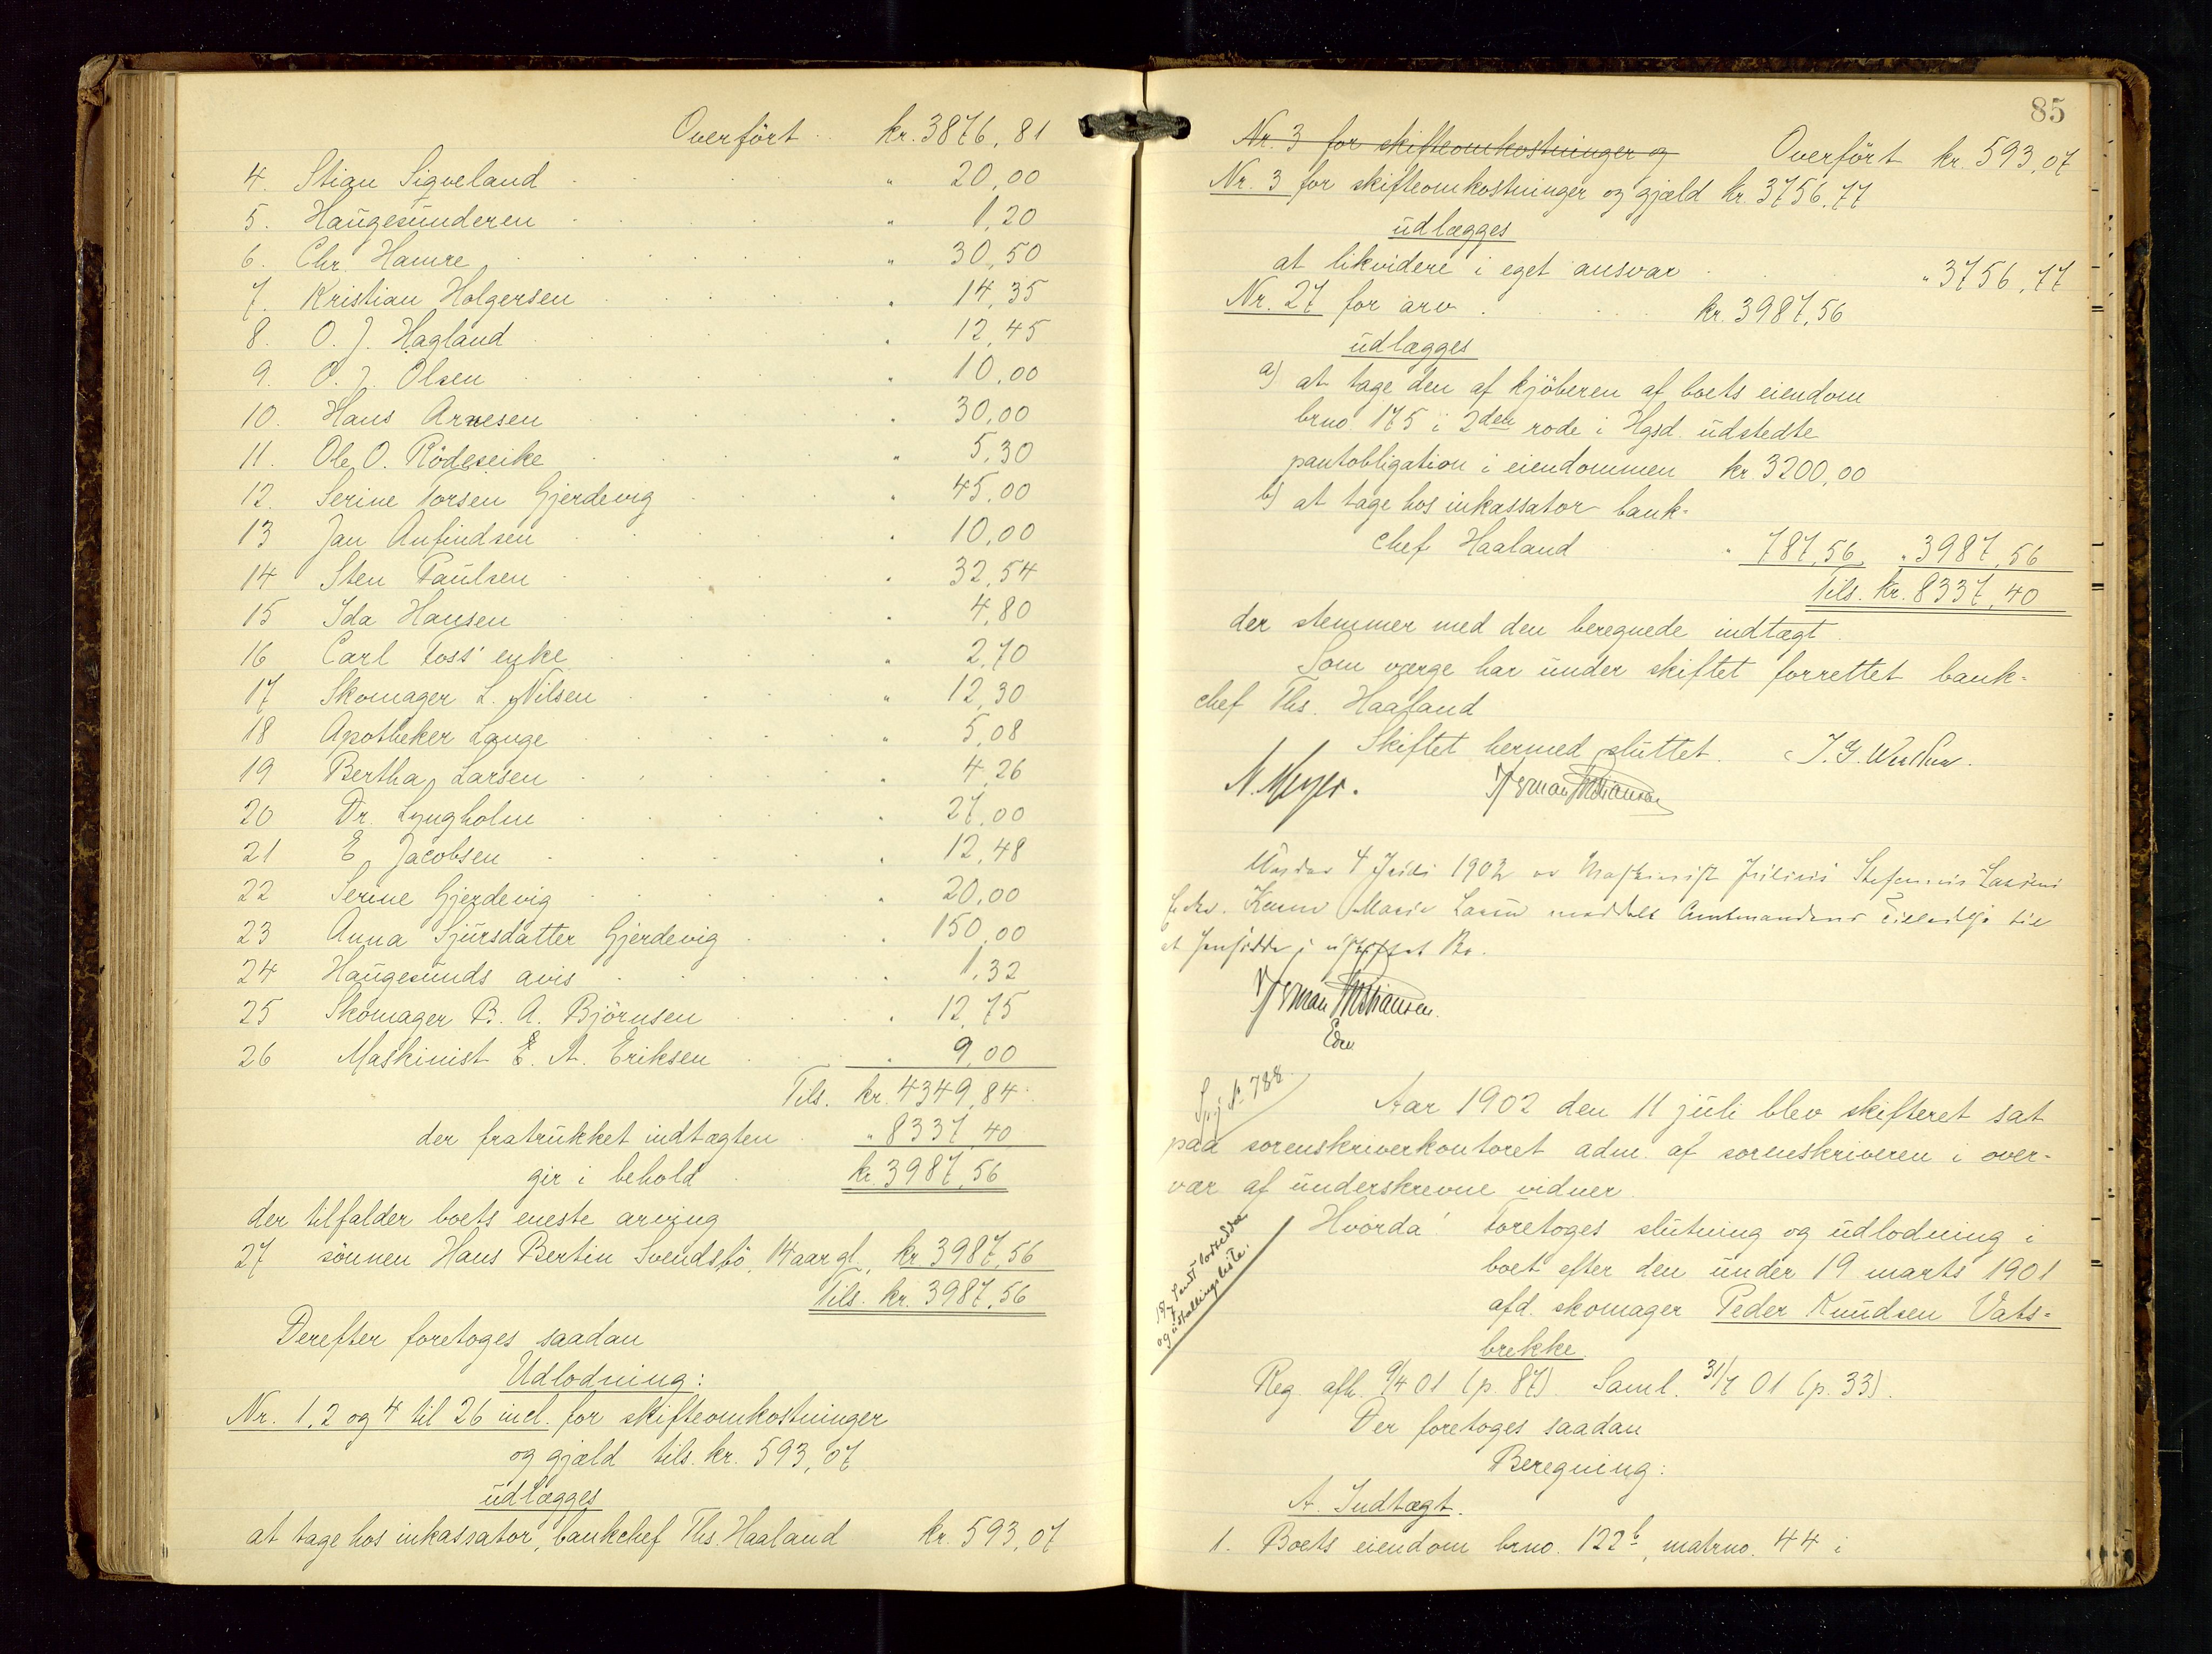 Overført kr. 3876,81
4. Stian Sigveland " 20,00
5. Haugesunderen " 1,20
6. Chr. Hamre " 30,50
7. Kristian Holgersen " 14,35
8. O. J. Hagland " 12,45
9. O. J. Olsen " 10,00
10. Hans Arnesen " 30,00
11. Ole O. Rödeseike " 5,30
12. Serine Torsen Gjerdevig " 45,00
13 Jan Anfindsen " 10,00
14 Sten Paulsen " 32,54
15 Ida Hansen " 4,80
16 Carl Foss' enke " 2,70
17 Skomager L. Nilsen " 12,30
18 Apotheker Lange " 5,08
19 Bertha Larsen " 4,26
20 Dr. Lyngholm " 27,00
21 E. Jacobsen " 12,48
22 Serine Gjerdevig " 20,00
23 Anna Sjursdatter Gjerdevig " 150,00
24 Haugesunds avis " 1,32
25 Skomager B. A. Björnsen " 12,75
26 Maskinist E. A. Eriksen " 9,00
Tils. kr. 4349,84
der fratrukket indtægten " 8337,40
gir i behold kr. 3987,56
der tilfalder boets eneste arving
27 sønnen Hans Bertin Svendsbö, 14 aar gl., kr 3987,56
Tils. kr. 3987,56
Derefter foretoges saadan
Udlodning:
Nr. 1, 2 og 4 til 26 incl. for skifteomkostninger
og gjæld tils. kr. 593,07
udlægges
at tage hos inkassator, bankchef Ths. Haaland kr. 593,07
85
Nr. 3 for skifteomkostninger og Overført kr. 593,07
Nr. 3 for skifteomkostninger og gjæld kr. 3756,77
udlægges
at likvidere i eget ansvar " 3756,77
Nr. 27 for arv kr. 3987,56
udlægges
a) at tage den af kjöberen af boets eiendom
brno. 175 i 2den rode i Hgsd. udstedte
pantobligation i eiendommen kr. 3200,00
b) at tage hos inkassator bank-
chef Haaland " 787,56 " 3987,56
Tils. kr. 8337,40
der stemmer med den beregnede indtægt.
Som værge har under skiftet forrettet bank-
chef Ths. Haaland
Skiftet hermed sluttet.
N. Meyer.
4 Juli 1902
Karen Marie Amtmandens til
at
Aar 1902 den 11 juli blev skifteret sat
paa sorenskriverkontoret adm. af sorenskriveren i over-
vær af underskrevne vidner.
Hvorda! Foretoges slutning og udlodning i
boet efter den under 19 marts 1901
afd. skomager Peder Knudsen Vats-
brekke.
Reg. afh. 9/4 01 (p. 87). Saml. 31/7 01 (p. 33).
Der foretoges saadan
Beregning:
A. Indtægt.
1. Boets eiendom brno. 122b, matrno. 44 i